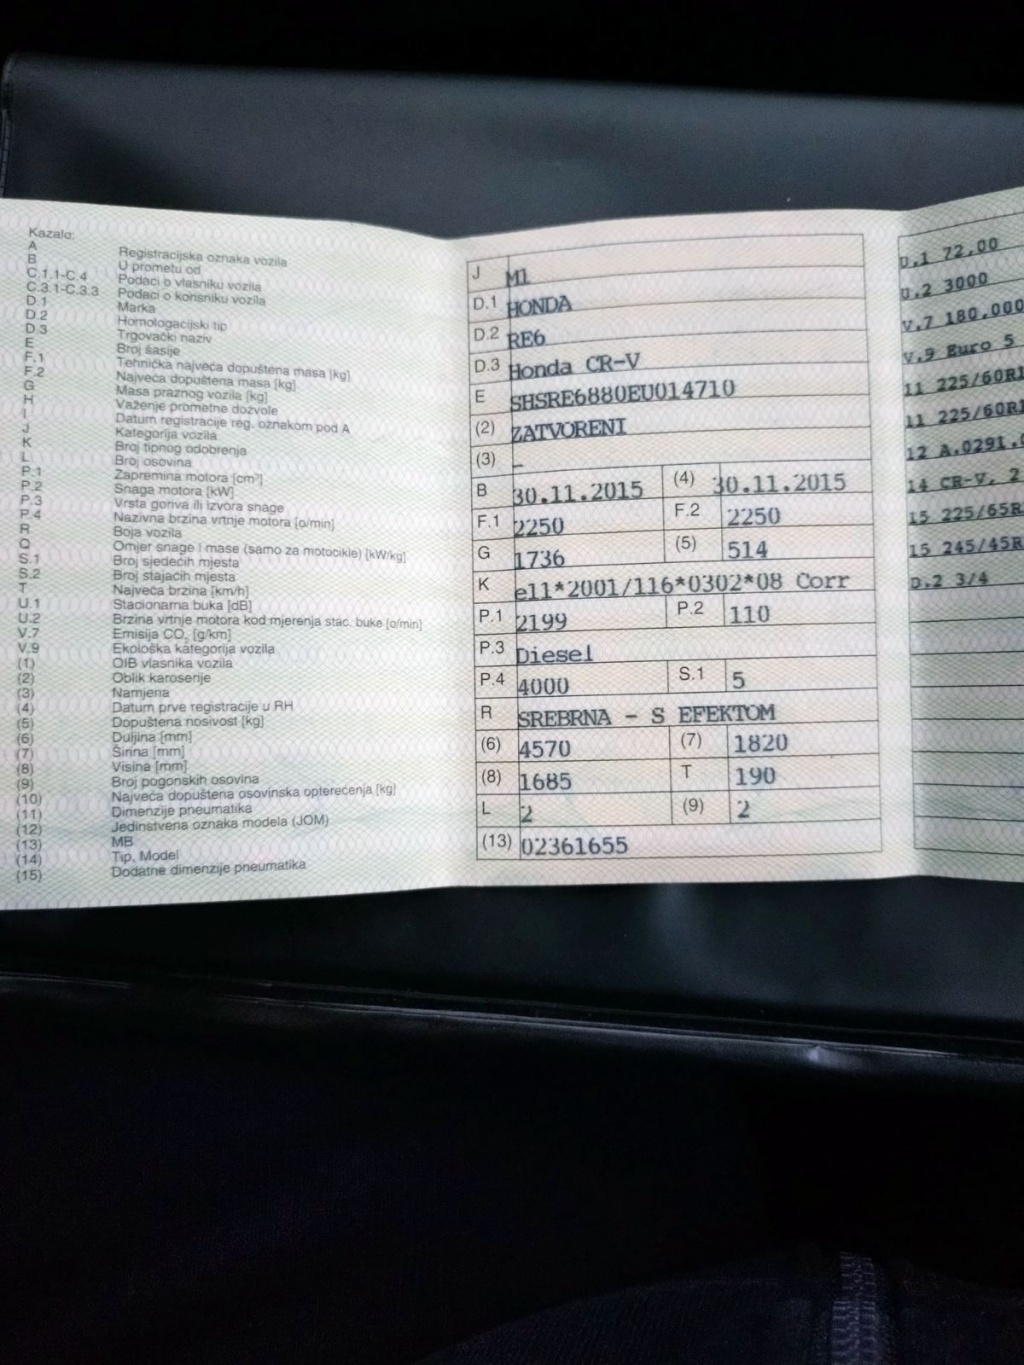 Kazalo:
A Registracijska oznaka vozila
B U prometu od
C.1.1-C.4 Podaci o vlasniku vozila
C.3.1-C.3.3 Podaci o korisniku vozila
D.1 Marka
D.2 Homologacijski tip
D.3 Trgovački naziv
E Broj šasije
F.1 Tehnička najveća dopuštena masa [kg]
F.2 Najveća dopuštena masa [kg]
G Masa praznog vozila [kg]
H Važenje prometne dozvole
I Datum registracije reg. oznakom pod A
J Kategorija vozila
K Broj tipnog odobrenja
L Broj osovina
P.1 Zapremina motora [cm³]
P.2 Snaga motora [kW]
P.3 Vrsta goriva ili izvora snage
P.4 Nazivna brzina vrtnje motora [o/min]
R Boja vozila
Q Omjer snage i mase (samo za motocikle) [kW/kg]
S.1 Broj sjedećih mjesta
S.2 Broj stajaćih mjesta
T Najveća brzina [km/h]
U.1 Stacionarna buka [dB]
U.2 Brzina vrtnje motora kod mjerenja stac. buke [o/min]
V.7 Emisija CO₂ [g/km]
V.9 Ekološka kategorija vozila
(1) OIB vlasnika vozila
(2) Oblik karoserije
(3) Namjena
(4) Datum prve registracije u RH
(5) Dopuštena nosivost [kg]
(6) Duljina [mm]
(7) Širina [mm]
(8) Visina [mm]
(9) Broj pogonskih osovina
(10) Najveća dopuštena osovinska opterećenja [kg]
(11) Dimenzije pneumatika
(12) Jedinstvena oznaka modela (JOM)
(13) MB
(14) Tip, Model
(15) Dodatne dimenzije pneumatika
J M1
D.1 HONDA
D.2 RE6
D.3 Honda CR-V
E SHSRE6880EU014710
(2) ZATVORENI
(3) -
B 30.11.2015 (4) 30.11.2015
F.1 2250 F.2 2250
G 1736 (5) 514
K e11*2001/116*0302*08 Corr
P.1 2199 P.2 110
P.3 Diesel
P.4 4000 S.1 5
R SREBRNA - S EFEKTOM
(6) 4570 (7) 1820
(8) 1685 T 190
L 2 (9) 2
(13) 02361655
U.1 72,00
U.2 3000
V.7 180,000
V.9 Euro 5
11 225/60R1
11 225/60R1
12 A.0291.0
14 CR-V, 2
15 225/65R
15 245/45R
D.2 3/4